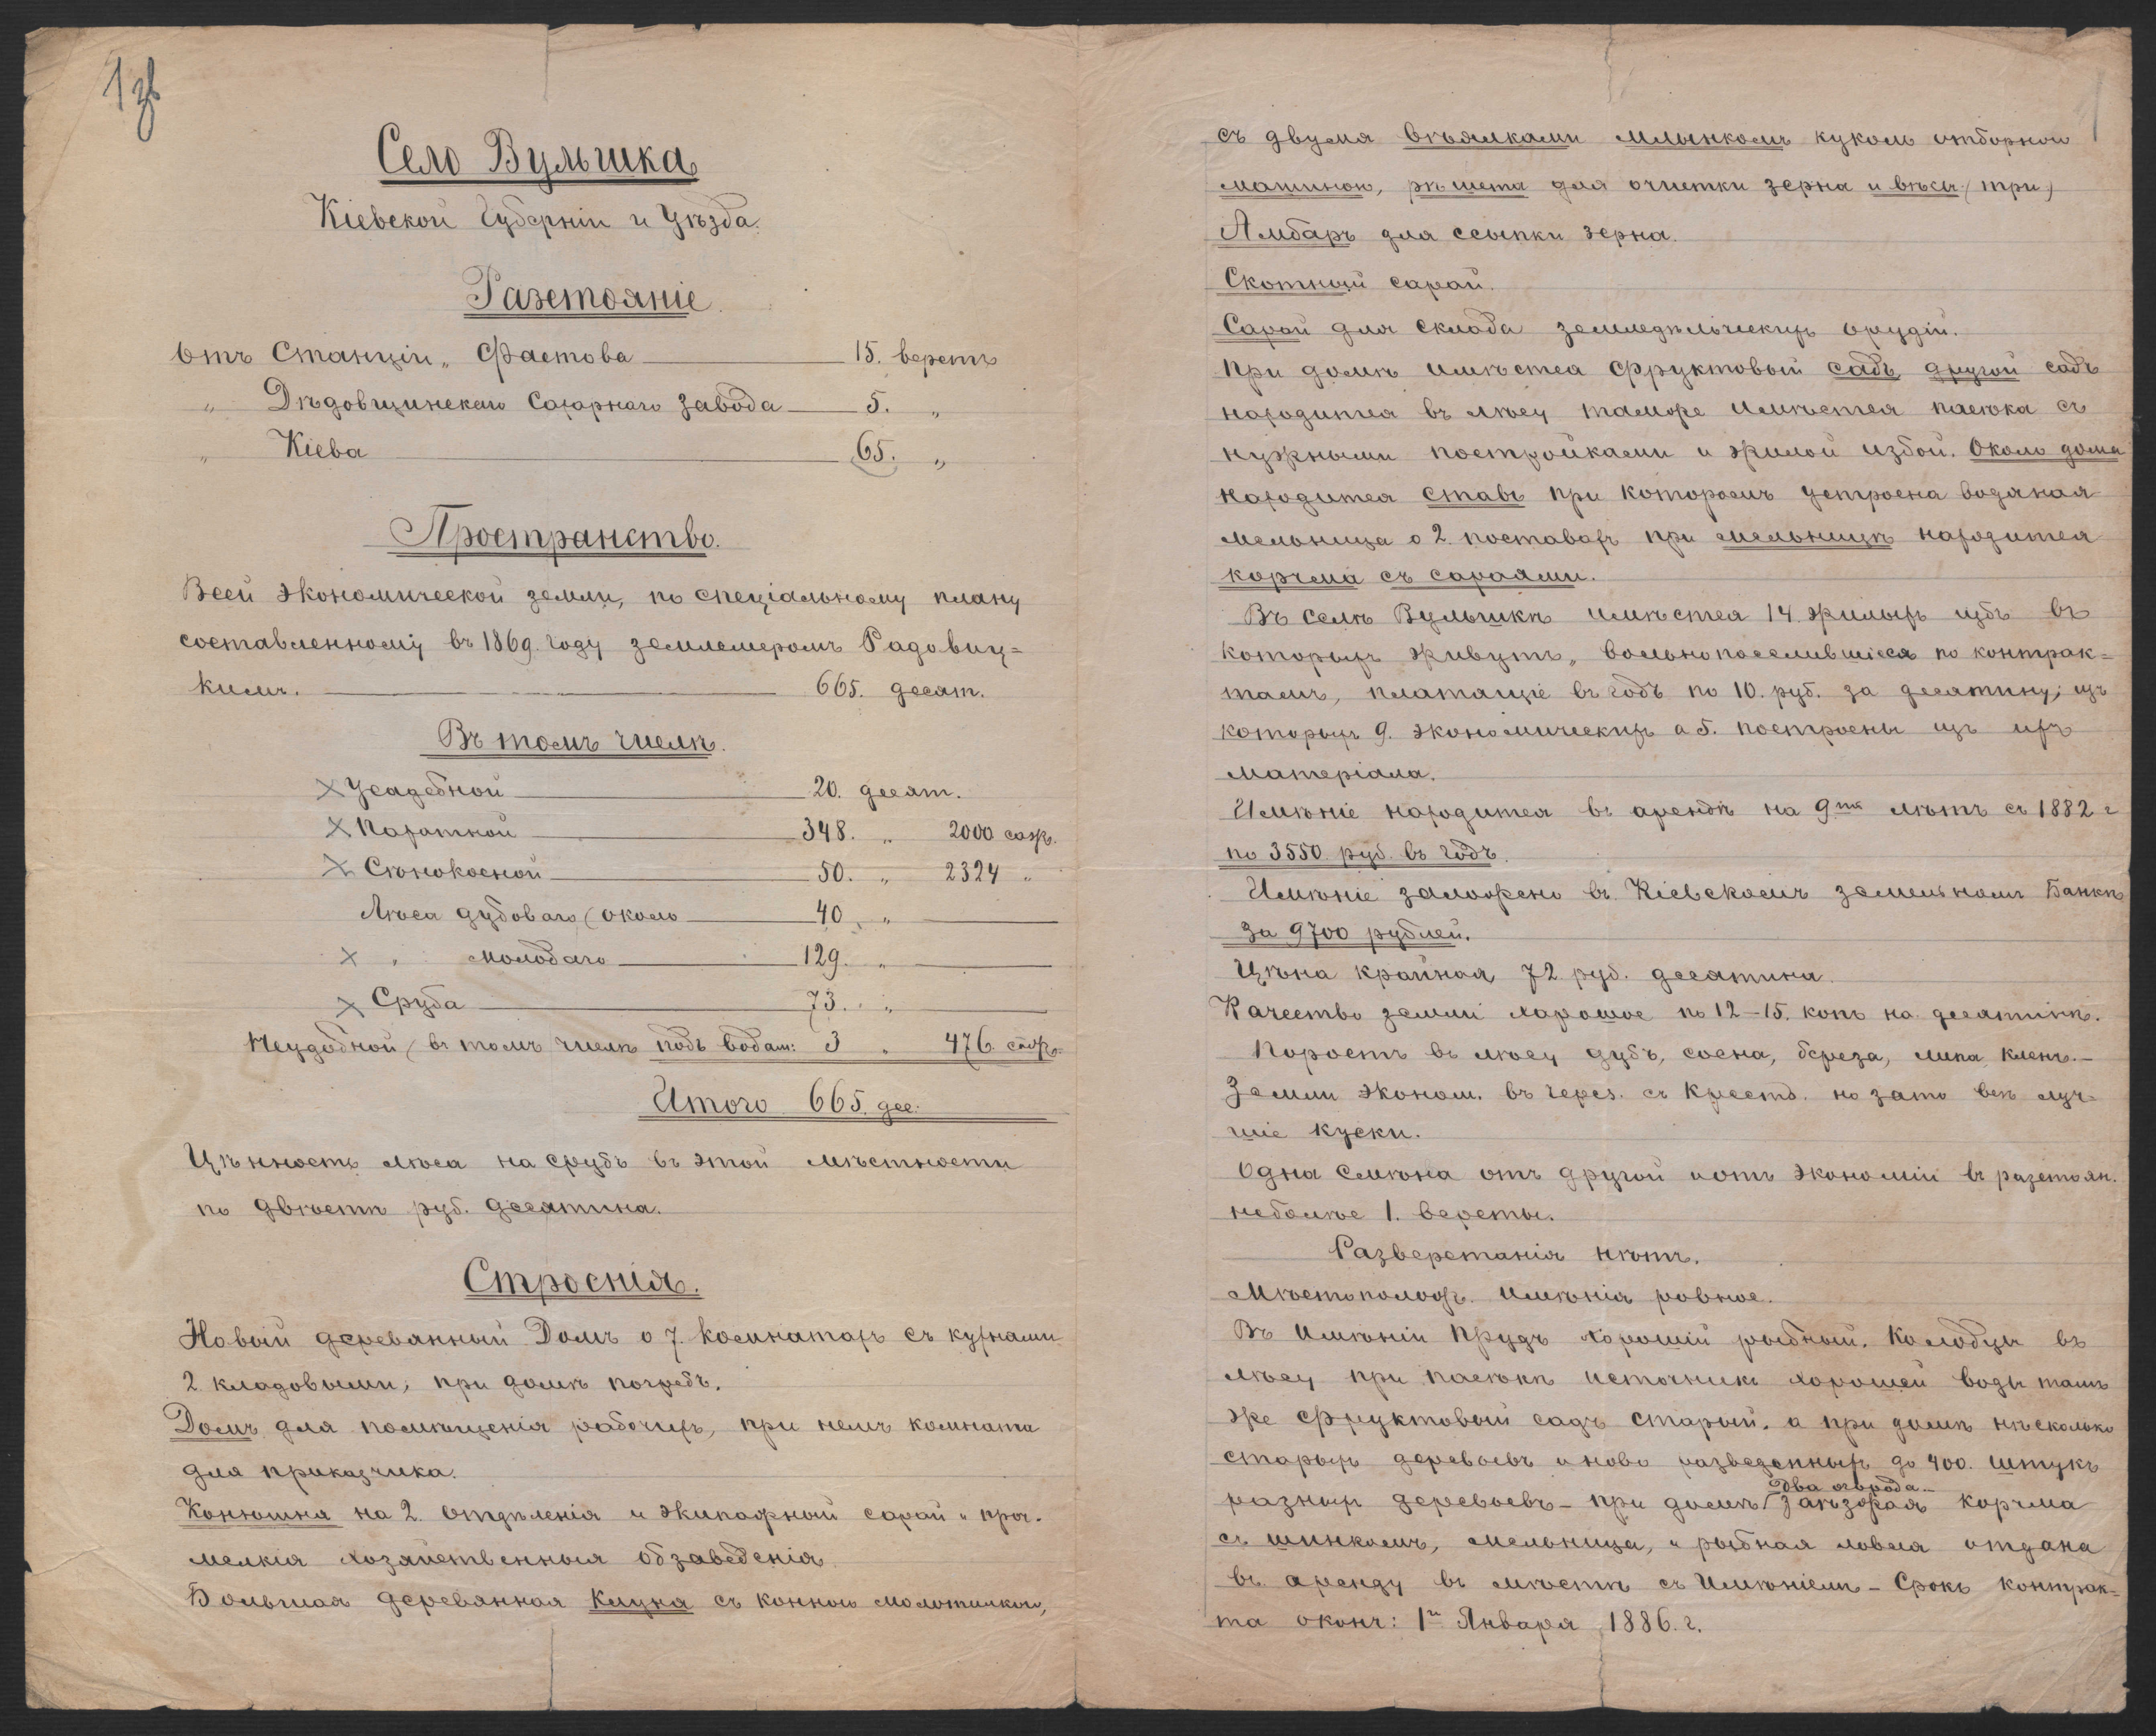 Село Вульшка
Кіевской Губерніи и Уѣзда.
Разстояніе.
Отъ Станціи „ Фастова 15. верстъ
„ Дѣдовщинскаго Сахарнаго Завода 5. „
„ Кіева 65. „
Пространство.
Всей экономической земли, по спеціальному плану
составленному въ 1869. году землемеромъ Радовиц=
кимъ. 665. десят.
Въ томъ числѣ.
× Усадебной 20. десят.
× Пахатной 348. „ 2000 саж.
× Сѣнокосной 50. „ 2324 „
Лѣса дубоваго (около 40. „
× „ молодаго 129. „
× Сруба 73. „
Неудобной (въ томъ числѣ подъ водам: 3 „ 476. саж.
Итого 665. дес.
Цѣнность лѣса на срубъ въ этой мѣстности
по двѣсти руб. десятина.
Строенія.
Новый деревянный Домъ о 7. комнатахъ съ кухнами
2. кладовыми; при домѣ погребъ.
Домъ для помѣщенія рабочихъ, при немъ комната
для приказчика.
Конюшня на 2. отдѣленія и экипажный сарай и проч.
мелкія хозайственныя обзаведенія
Большая деревянная Клуня съ конною молотилкою,
съ двумя вѣялками млынкомъ куколь отборною
машиною, рѣшета для очистки зерна и вѣсы (три)
Амбаръ для ссыпки зерна.
Скотный сарай.
Сарай для склада земледѣльческихъ орудій.
При домѣ имѣстся фруктовый садъ другой садъ
находится въ лѣсу таможе имѣется пасѣка съ
нужными постройками и жилой избой. Около дома
находится ставъ при которомъ устроена водяная
мельница о 2. поставахъ при мельницѣ находится
корчма съ сараями.
Въ селѣ Вульшкѣ имѣстся 14. жилыхъ избъ въ
которыхъ живутъ „ вольнопоселившіеся по контрак=
тамъ, платящіе въ годъ по 10. руб. за десятину; изъ
которыхъ 9. экономическихъ а 5. построены изъ ихъ
матеріала.
Имѣніе находится въ арендѣ на 9ть лѣтъ съ 1882 г
по 3550. руб. въ годъ.
Имѣніе заложено въ Кіевскомъ земельномъ Банкѣ
За 9700 рублей.
Цѣна крайная 72. руб. десятина.
Качество земли хорошое по 12–15. копъ на десятинѣ.
Поростъ въ лѣсу дубъ, сосна, береза, липа, кленъ.–
Земли эконом. въ через. съ крестъ. но зато всѣ луч=
шіе куски.
Одна смѣна отъ другой и отъ экономіи въ разстоян.
неболѣе 1. версты.
Разверстанія нѣтъ.
Мѣстоположъ. имѣнія ровное.
Въ Имѣніи Прудъ хорошій рыбный. Колодцы въ
лѣсу при пасѣкѣ источникъ хорошей воды тамъ
же фруктовый садъ старый. а при домѣ нѣсколько
старыхъ деревьевъ и ново разведенныхъ до 400. штукъ
два огорода.–
разныхъ деревьевъ – при домѣ заѣзжая корчма
съ шинкомъ, мельница, и рыбная ловля отдана
въ аренду въ мѣстѣ съ Имѣніемъ – Срокъ контрак=
та оконч: 1го Января 1886. г.